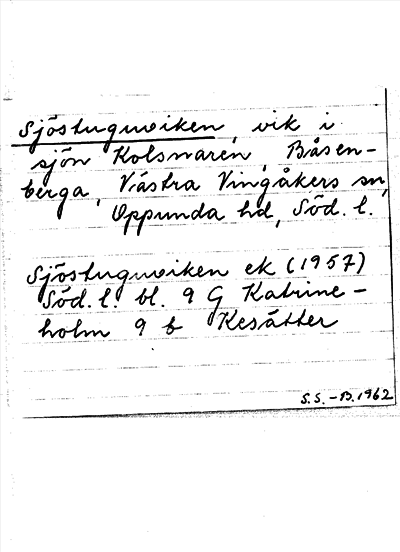 Sjöstuguviken, vik i
sjön Kolsnaren, Båsen-
berga, Västra Vingåkers sn,
Oppunda hd, Söd. l.
Sjöstuguviken ek (1957)
Söd. l. bl. 9 G Katrine-
holm 9 b Kesätter
S.S. – B. 1962